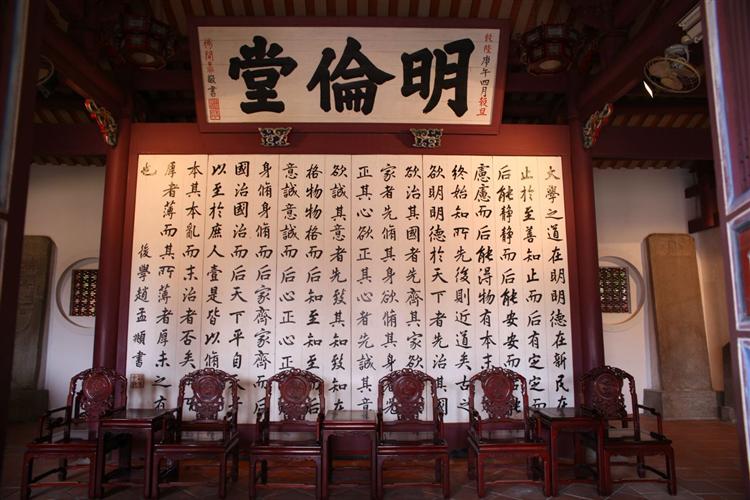 乾隆庚午四月穀旦
明倫堂
楊開鼎敬書
大學之道在明明德在新民在
止於至善知止而后有定定而
后能靜靜而后能安安而后能
慮慮而后能得物有本末
終始知所先後則近道矣古之
欲明明德於天下者先治其國
欲治其國者先齊其家欲
家者先脩其身欲脩其身者先
正其心欲正其心者先誠其意
欲誠其意者先致其知致知在
格物物格而后知至知至
意誠意誠而后心正心正
身脩身脩而后家齊家齊而后
國治國治而后天下平自天
以至於庶人壹是皆以脩
本其本亂而末治者否矣
厚者薄而其所薄者厚未之有
也
後學趙孟頫書